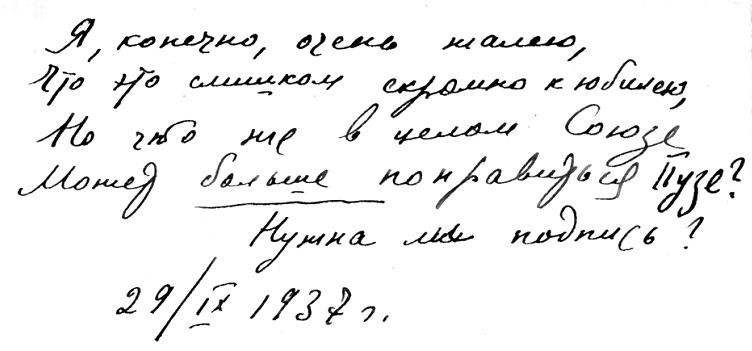 Я, конечно, очень жалею,
Что это слишком скромно к юбилею,
Но что же в целом Союзе
Может больше понравиться Пузе?
Нужна ли подпись?
29/IX 1937 г.